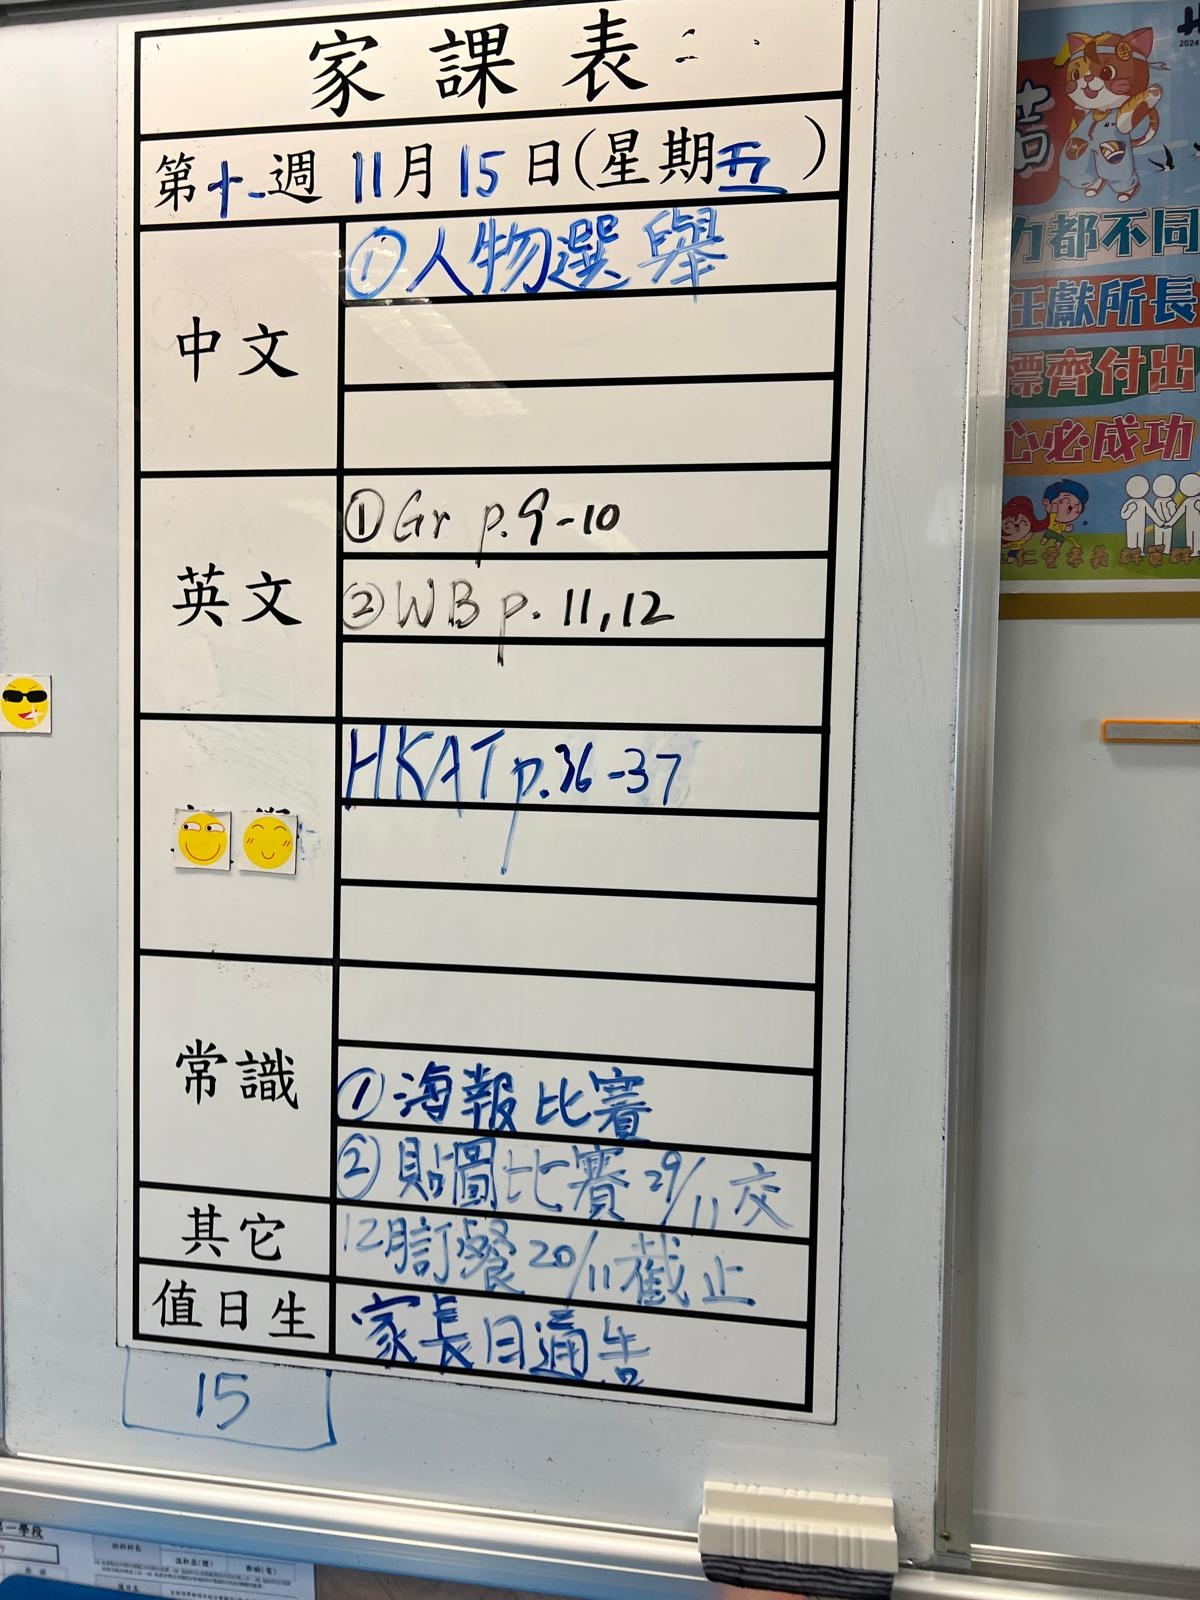 家課表
第十一週 11月15日(星期五)
中文
①人物選舉
英文
①Gr p.9-10
②WB p. 11,12
HKAT p.36-37
常識
①海報比賽
②貼圖比賽 29/11 交
其它
12月訂餐 20/11 截止
值日生
家長日通告
15
2024
力都不同
任獻所長
標齊付出
心必成功